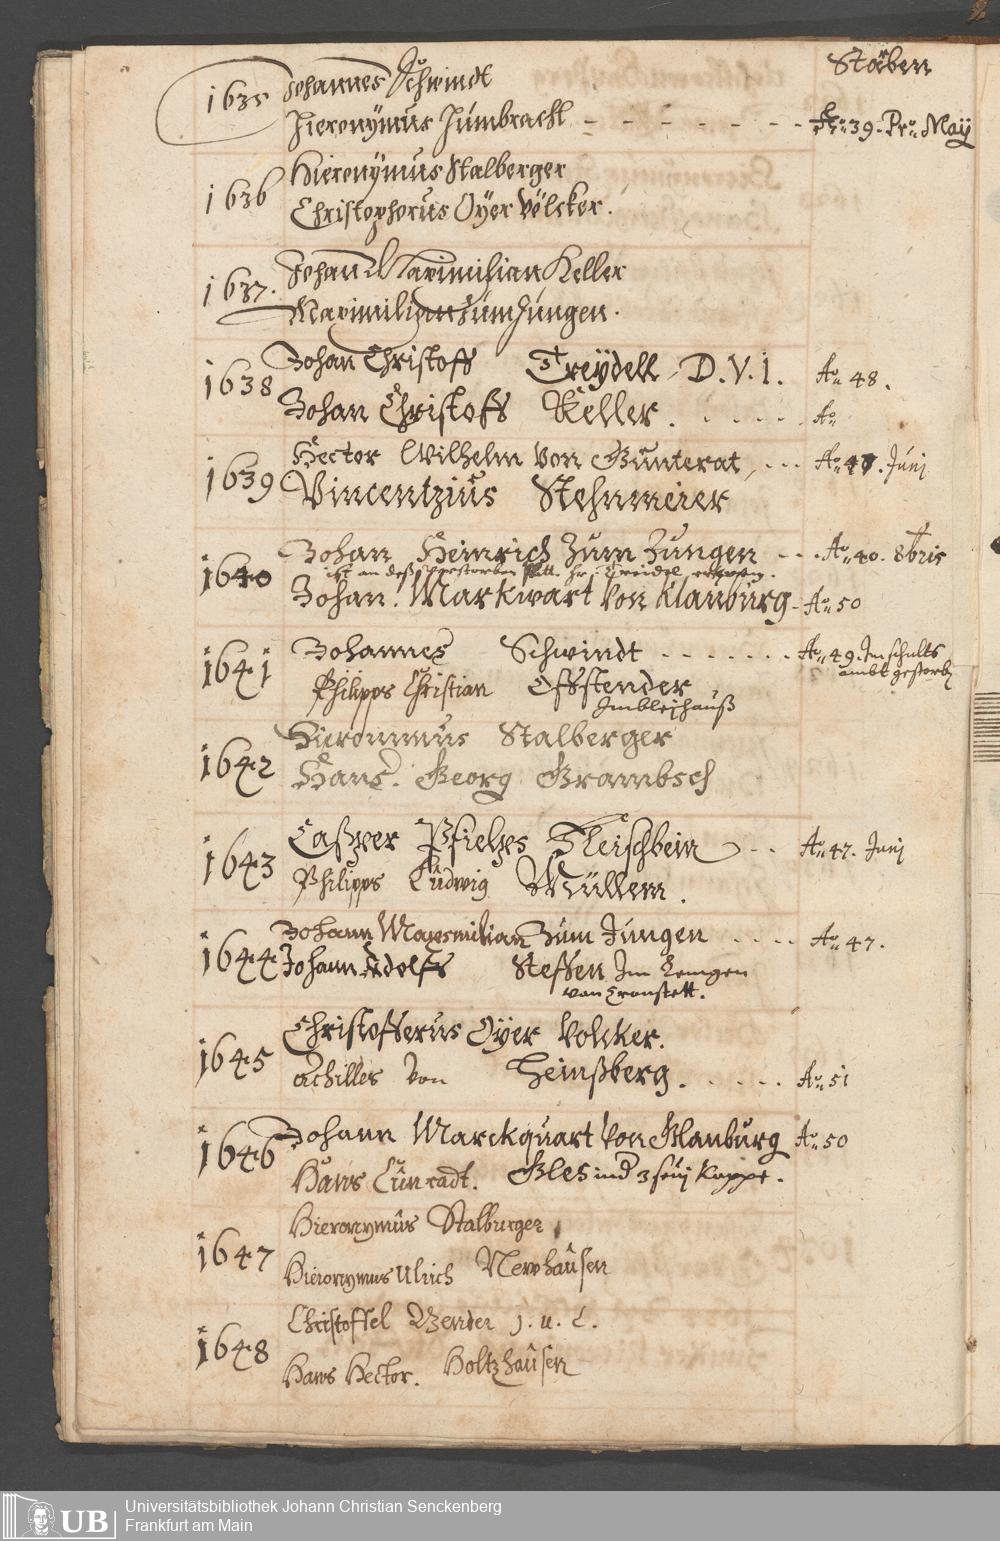 Stürben
1635 Johannes Schwindt
Hieronymus Humbracht - - - - - - - - Ao. 39. Pr. Maÿ
1636 Hieronÿmus Stalberger
Christopherus Oÿer Völcker.
1637. Johan Maximilian Keller
Maximilian Zum Jungen.
1638 Johan Christoff Treÿdell D. V. I. Ao. 48.
Johan Christoff Keller. . . . . . Ao.
1639 Hector Wilhelm von Günterat, . . . Ao. 47. Junj
Vincentzius Stehnmeier
1640 Johan Heinrich Zum Jungen - - . Ao. 40. 8bris
ist an deß gestorben hr. Treidel
Johan. Markwart von Klanburg - Ao. 50
1641 Johannes Schwindt . . . . . . . Ao. 49. Im schults
ambt gestorb
Philipps Christian Offstender
Im bleÿhauß
1642 Hieronimus Stalberger
Hans. Georg Grambsch
1643 Casper Pfieltzes Fleischbein - - Ao. 47. Junj
Philipps Ludwig Müllem.
1644 Johann Maxsmilian Zum Jungen . . . . Ao. 47.
Johann Adolff Steffen Im
von Cronstett.
1645 Christofferus Oÿer Volcker.
Achilles von Heinßberg. . . . . . Ao. 51
1646 Johann Marckquart von Glanburg Ao. 50
Hans Cunradt.
1647 Hieronymus Stalburger
Hieronymus Ulrich Newhausen
1648 Christoffel Bender J. u. L.
Hans Hector. Holtzhausen
UB Universitätsbibliothek Johann Christian Senckenberg
Frankfurt am Main